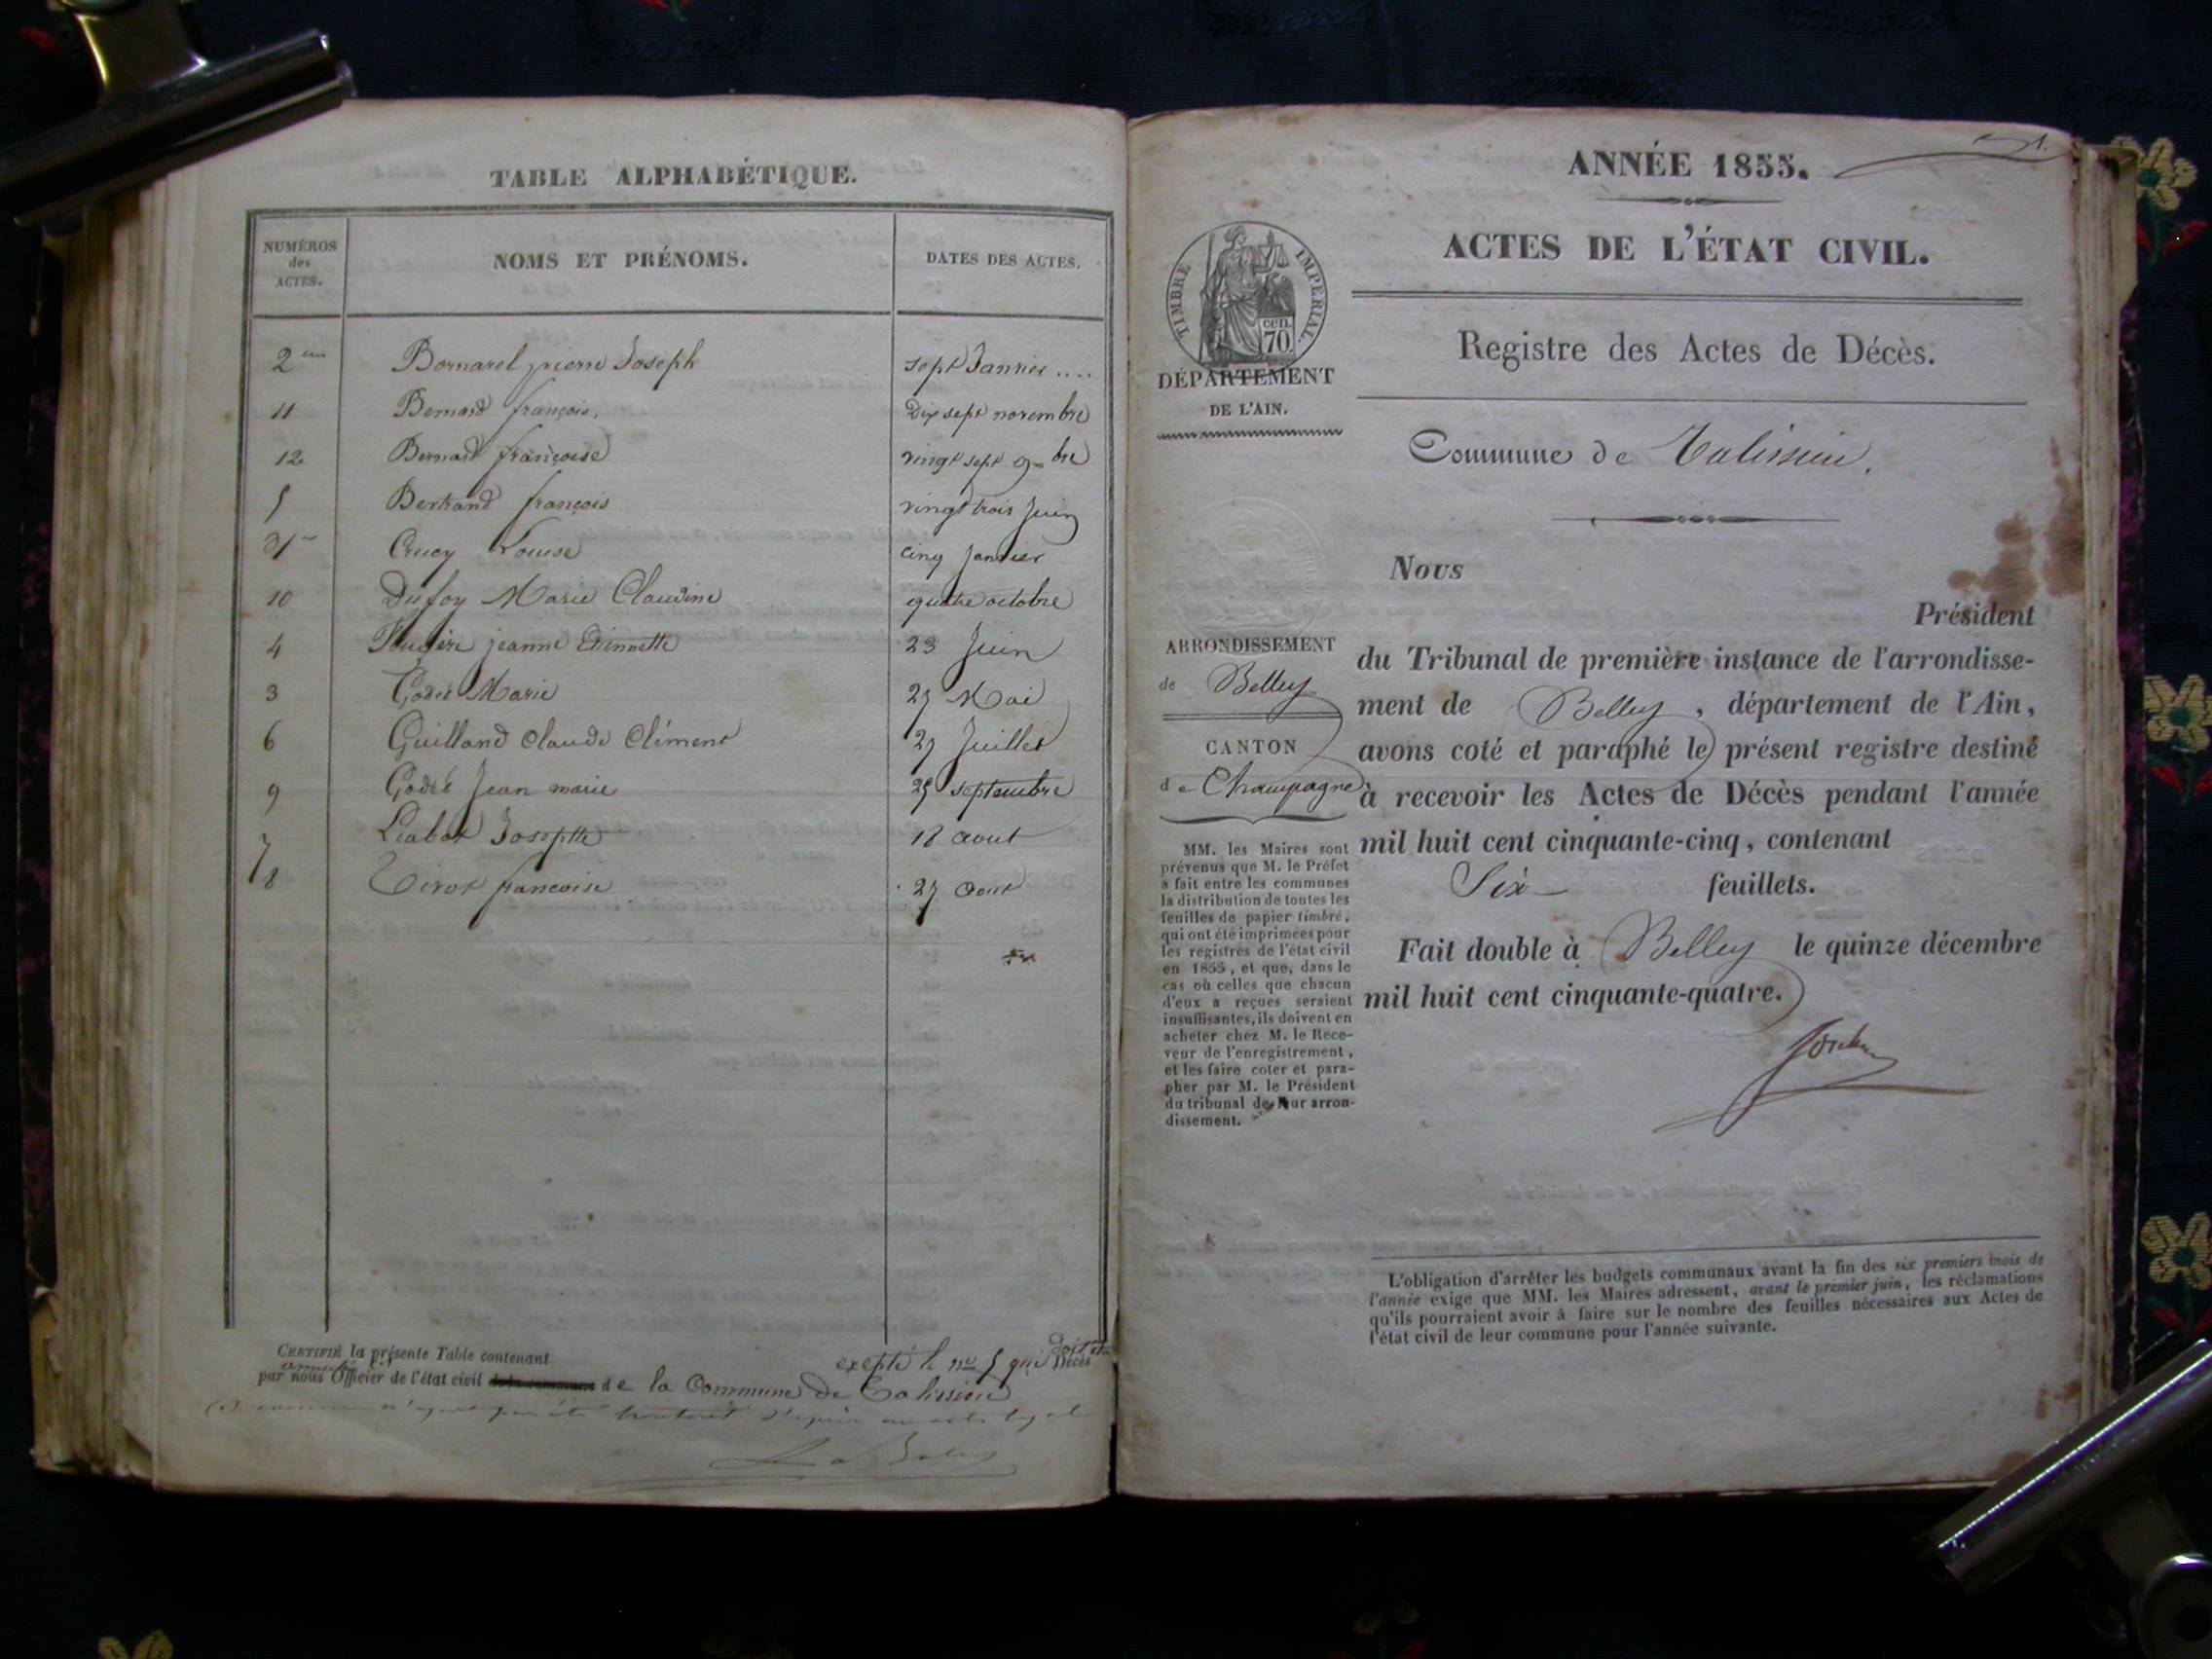 TABLE ALPHABÉTIQUE.
NUMÉROS des ACTES. NOMS ET PRÉNOMS. DATES DES ACTES.
2 Bornarel pierre Joseph sept Janvier ....
11 Bernard françois. Dix sept novembre
12 Bernard françoise vingt sept 9bre
5 Bertrand françois vingt trois Juin
1 Crucy Louise cinq Janvier
10 Dufoy Marie Claudine quatre octobre
4 Fugère jeanne Etiennette 23 Juin
3 Godet Marie 27 Mai
6 Guilland Claude Clément 27 Juillet
9 Godet Jean marie 25 septembre
7 Josephte 18 aout
8 Tirot francoise 27 Aout
CERTIFIÉ la présente Table contenant excepté le no 5 qui doit Décès
par nous Officier de l'état civil de la Commune de Talissieu
ANNÉE 1855. 1.
ACTES DE L'ÉTAT CIVIL.
TIMBRE IMPÉRIAL.
cen. 70.
Registre des Actes de Décès.
DÉPARTEMENT
DE L'AIN.
Commune de Talissieu.
Nous
Président
ARRONDISSEMENT
de Belley
CANTON
de Champagne
MM. les Maires sont
prévenus que M. le Préfet
a fait entre les communes
la distribution de toutes les
feuilles de papier timbré,
qui ont été imprimées pour
les registres de l'état civil
en 1855, et que, dans le
cas où celles que chacun
d'eux a reçues seraient
insuffisantes, ils doivent en
acheter chez M. le Rece-
veur de l'enregistrement,
et les faire coter et para-
pher par M. le Président
du tribunal de leur arron-
dissement.
du Tribunal de première instance de l'arrondisse-
ment de Belley, département de l'Ain,
avons coté et paraphé le présent registre destiné
à recevoir les Actes de Décès pendant l'année
mil huit cent cinquante-cinq, contenant
Six feuillets.
Fait double à Belley le quinze décembre
mil huit cent cinquante-quatre.
L'obligation d'arrêter les budgets communaux avant la fin des six premiers mois de
l'année exige que MM. les Maires adressent, avant le premier juin, les réclamations
qu'ils pourraient avoir à faire sur le nombre des feuilles nécessaires aux Actes de
l'état civil de leur commune pour l'année suivante.